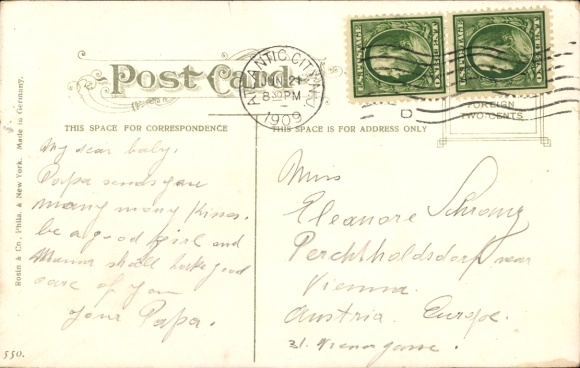 Post Card
ATLANTIC CITY, N.J.
JUN 21
8 30 PM
1909
U.S. POSTAGE
ONE CENT
U.S. POSTAGE
ONE CENT
FOREIGN
TWO CENTS
THIS SPACE FOR CORRESPONDENCE
THIS SPACE IS FOR ADDRESS ONLY
Rosin & Co., Phila. & New York. Made in Germany.
My dear baby,
Papa sends you
many many kisses.
be a good girl and
Mama shall take good
care of you
your Papa.
Miss
Eleanore
Perchtholdsdorf near
Vienna.
Austria. Europe.
31. Vienergasse.
550.